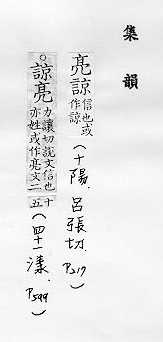 集韻
亮諒信也或作諒(十陽.呂張切.P217)
諒亮力讓切說文信也亦姓或作亮文二十五(四十一漾.P599)